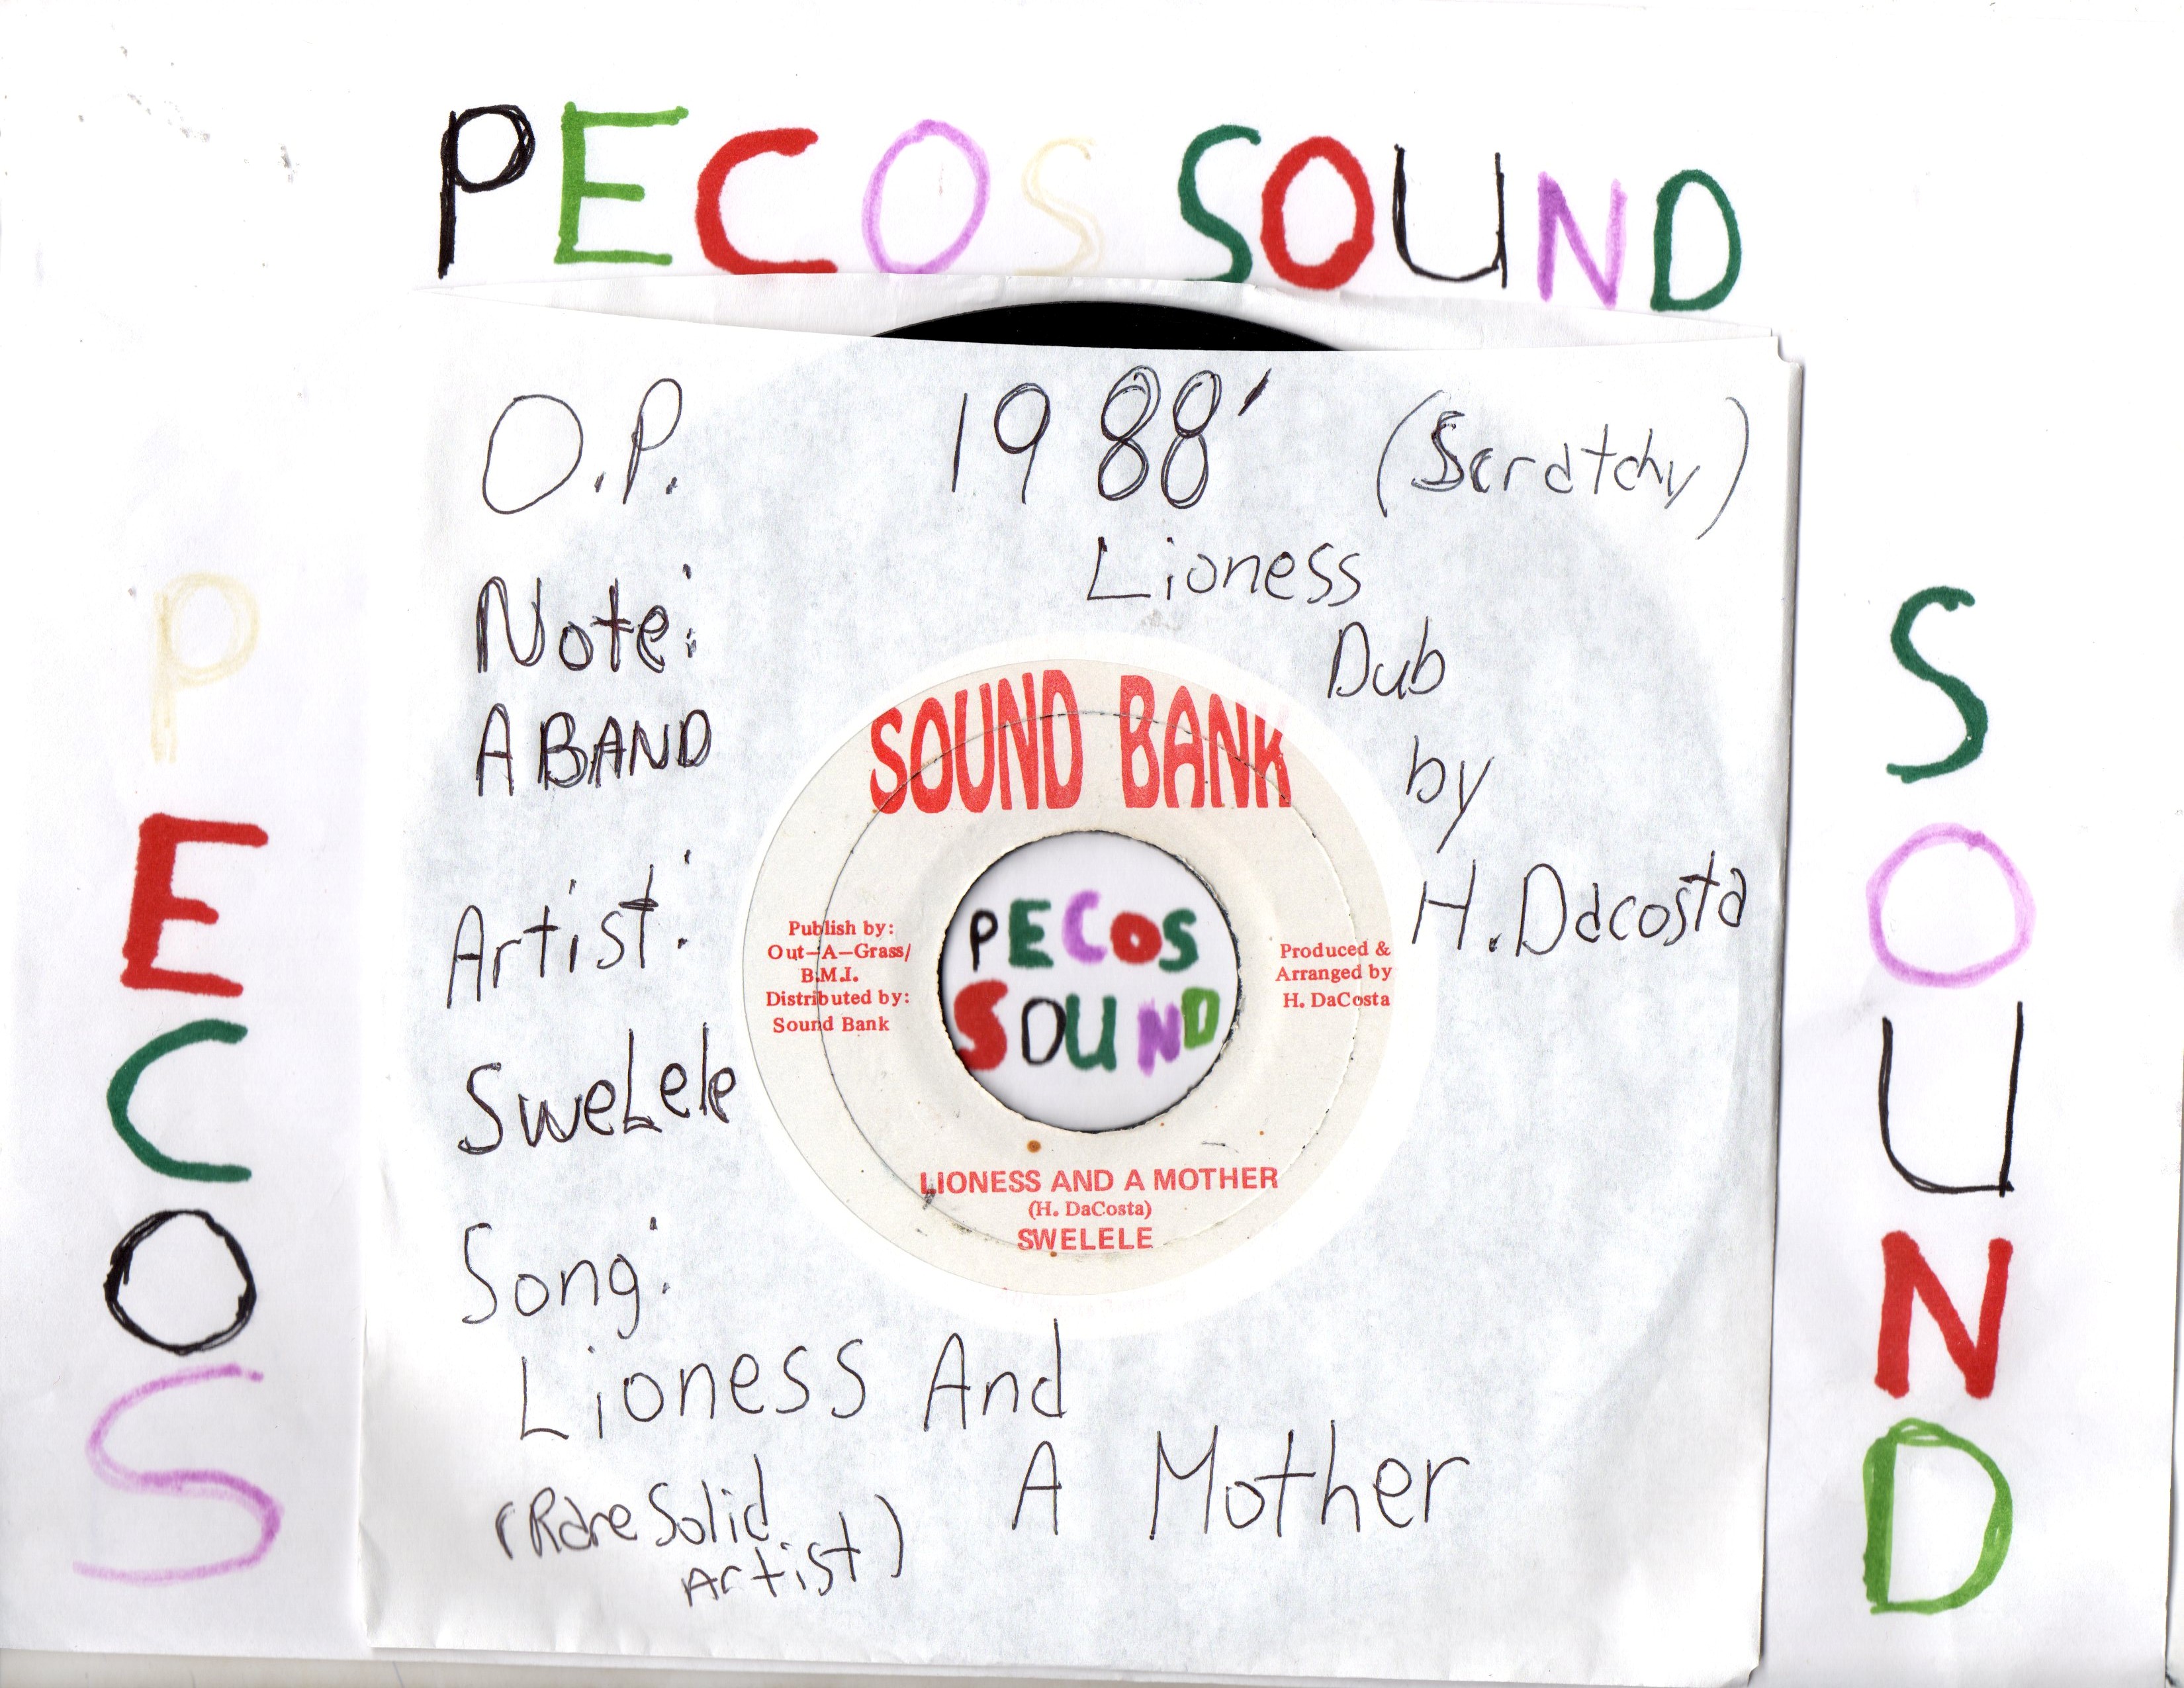 PECOS SOUND
O.P. 1988' (Scratchy)
Note:
A BAND
Artist:
SweLele
Song:
Lioness And
A Mother
(Rare Solid
Artist)
Lioness
Dub
by
H. Dacosta
SOUND BANK
Publish by:
Out-A-Grass/
B.M.I.
Distributed by:
Sound Bank
PECOS
SOUND
Produced &
Arranged by
H. DaCosta
LIONESS AND A MOTHER
(H. DaCosta)
SWELELE
PECOS
SOUND